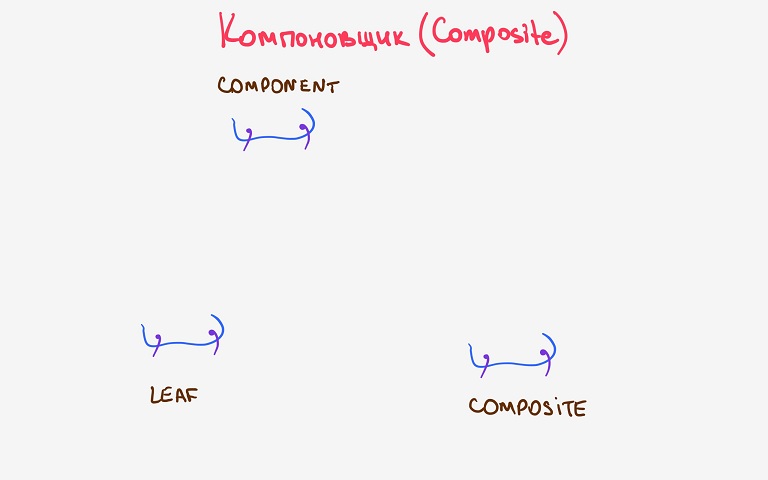 Компоновщик (Composite)
COMPONENT
LEAF
COMPOSiTE